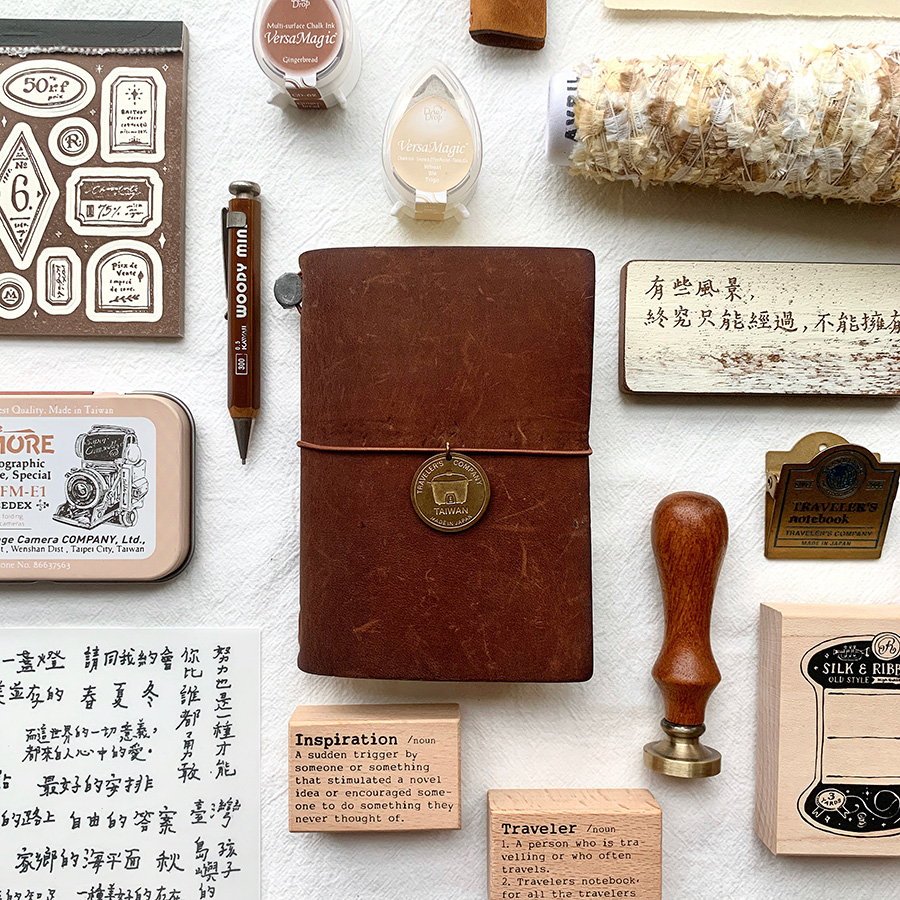 50% off
prix
BASTONY
N°
6.
R
Chocolate
75%
Prix de
Vente
imposé
M
Drop
Multi-surface Chalk Ink
VersaMagic
Gingerbread
Dew
Drop
VersaMagic
Wheat
Blé
Trigo
AVRIL
WOODY MIN
KAWAII
0.5
300
有些風景,
終究只能經過,不能擁有
TRAVELER'S COMPANY
TAIWAN
MADE IN JAPAN
est Quality, Made in Taiwan
MORE
ographic
e, Special
FM-E1
EEDEX
folding
cameras
age Camera COMPANY, Ltd.,
t, Wenshan Dist, Taipei City, Taiwan
one No. 86637563
TRAVELER'S
notebook
TRAVELER'S COMPANY
MADE IN JAPAN
SILK & RIBB
OLD STYLE
3
YARDS
一盞燈
請同我約會
並存的
春夏冬
你比誰都勇敢
努力也是一種才能
而這世界的一切意義,
都來自人心中的愛。
最好的安排
的路上
自由的答案
臺灣
家鄉的海平面
秋
島嶼
孩子的
一種美好的存在
Inspiration /noun
A sudden trigger by
someone or something
that stimulated a novel
idea or encouraged some-
one to do something they
never thought of.
Traveler /noun
1. A person who is tra
velling or who often
travels.
2. Travelers notebook,
for all the travelers